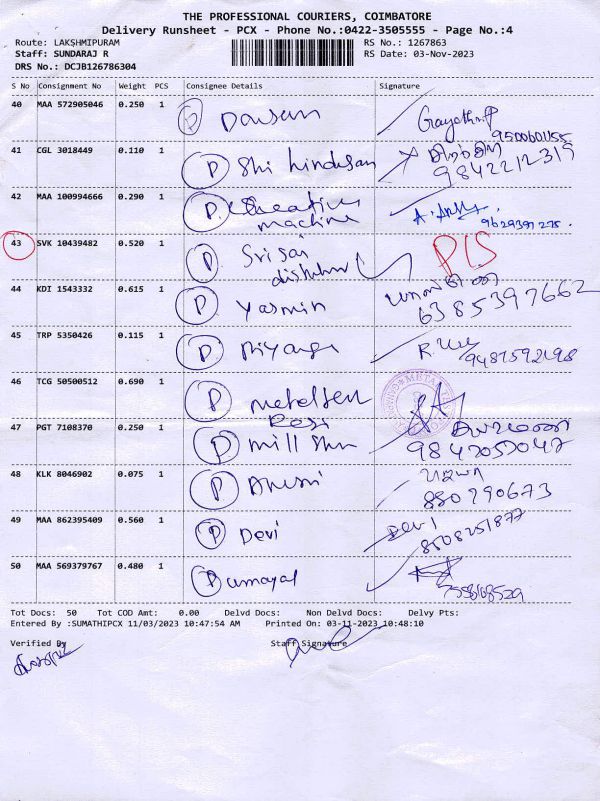 THE PROFESSIONAL COURIERS, COIMBATORE
Delivery Runsheet - PCX - Phone No.:0422-3505555 - Page No.:4
Route: LAKSHMIPURAM RS No.: 1267863
Staff: SUNDARAJ R RS Date: 03-Nov-2023
DRS No.: DCJB126786304
S No Consignment No Weight PCS Consignee Details Signature
40 MAA 572905046 0.250 1 P
9500601155
41 CGL 3018449 0.110 1 P Shi hindusan
9842212319
42 MAA 100994666 0.290 1 P. Creative
machine
9629391278.
43 SVK 10439482 0.520 1 P Sri sai
44 KDI 1543332 0.615 1 P Yasmin
6385397662
45 TRP 5350426 0.115 1 P
9487592198
46 TCG 50500512 0.690 1 P
47 PGT 7108370 0.250 1 P mill
9843053047
48 KLK 8046902 0.075 1 P
880790673
49 MAA 862395409 0.560 1 P Devi Devi
8508251877
50 MAA 569379767 0.480 1 P umayal
Tot Docs: 50 Tot COD Amt: 0.00 Delvd Docs: Non Delvd Docs: Delvy Pts:
Entered By :SUMATHIPCX 11/03/2023 10:47:54 AM Printed On: 03-11-2023 10:48:10
Verified By Staff Signature